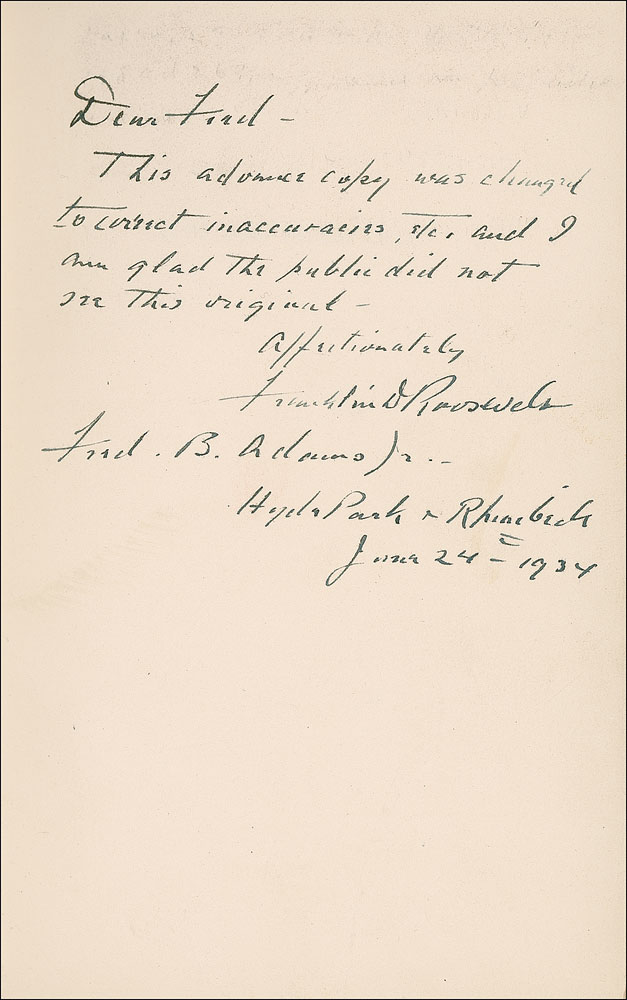 Dear Fred -
This advance copy was changed
to correct inaccuracies, etc, and I
am glad the public did not
see this original -
Affectionately
Franklin D Roosevelt
Fred. B. Adams Jr. -
Hyde Park & Rhinebeck
June 24 - 1934